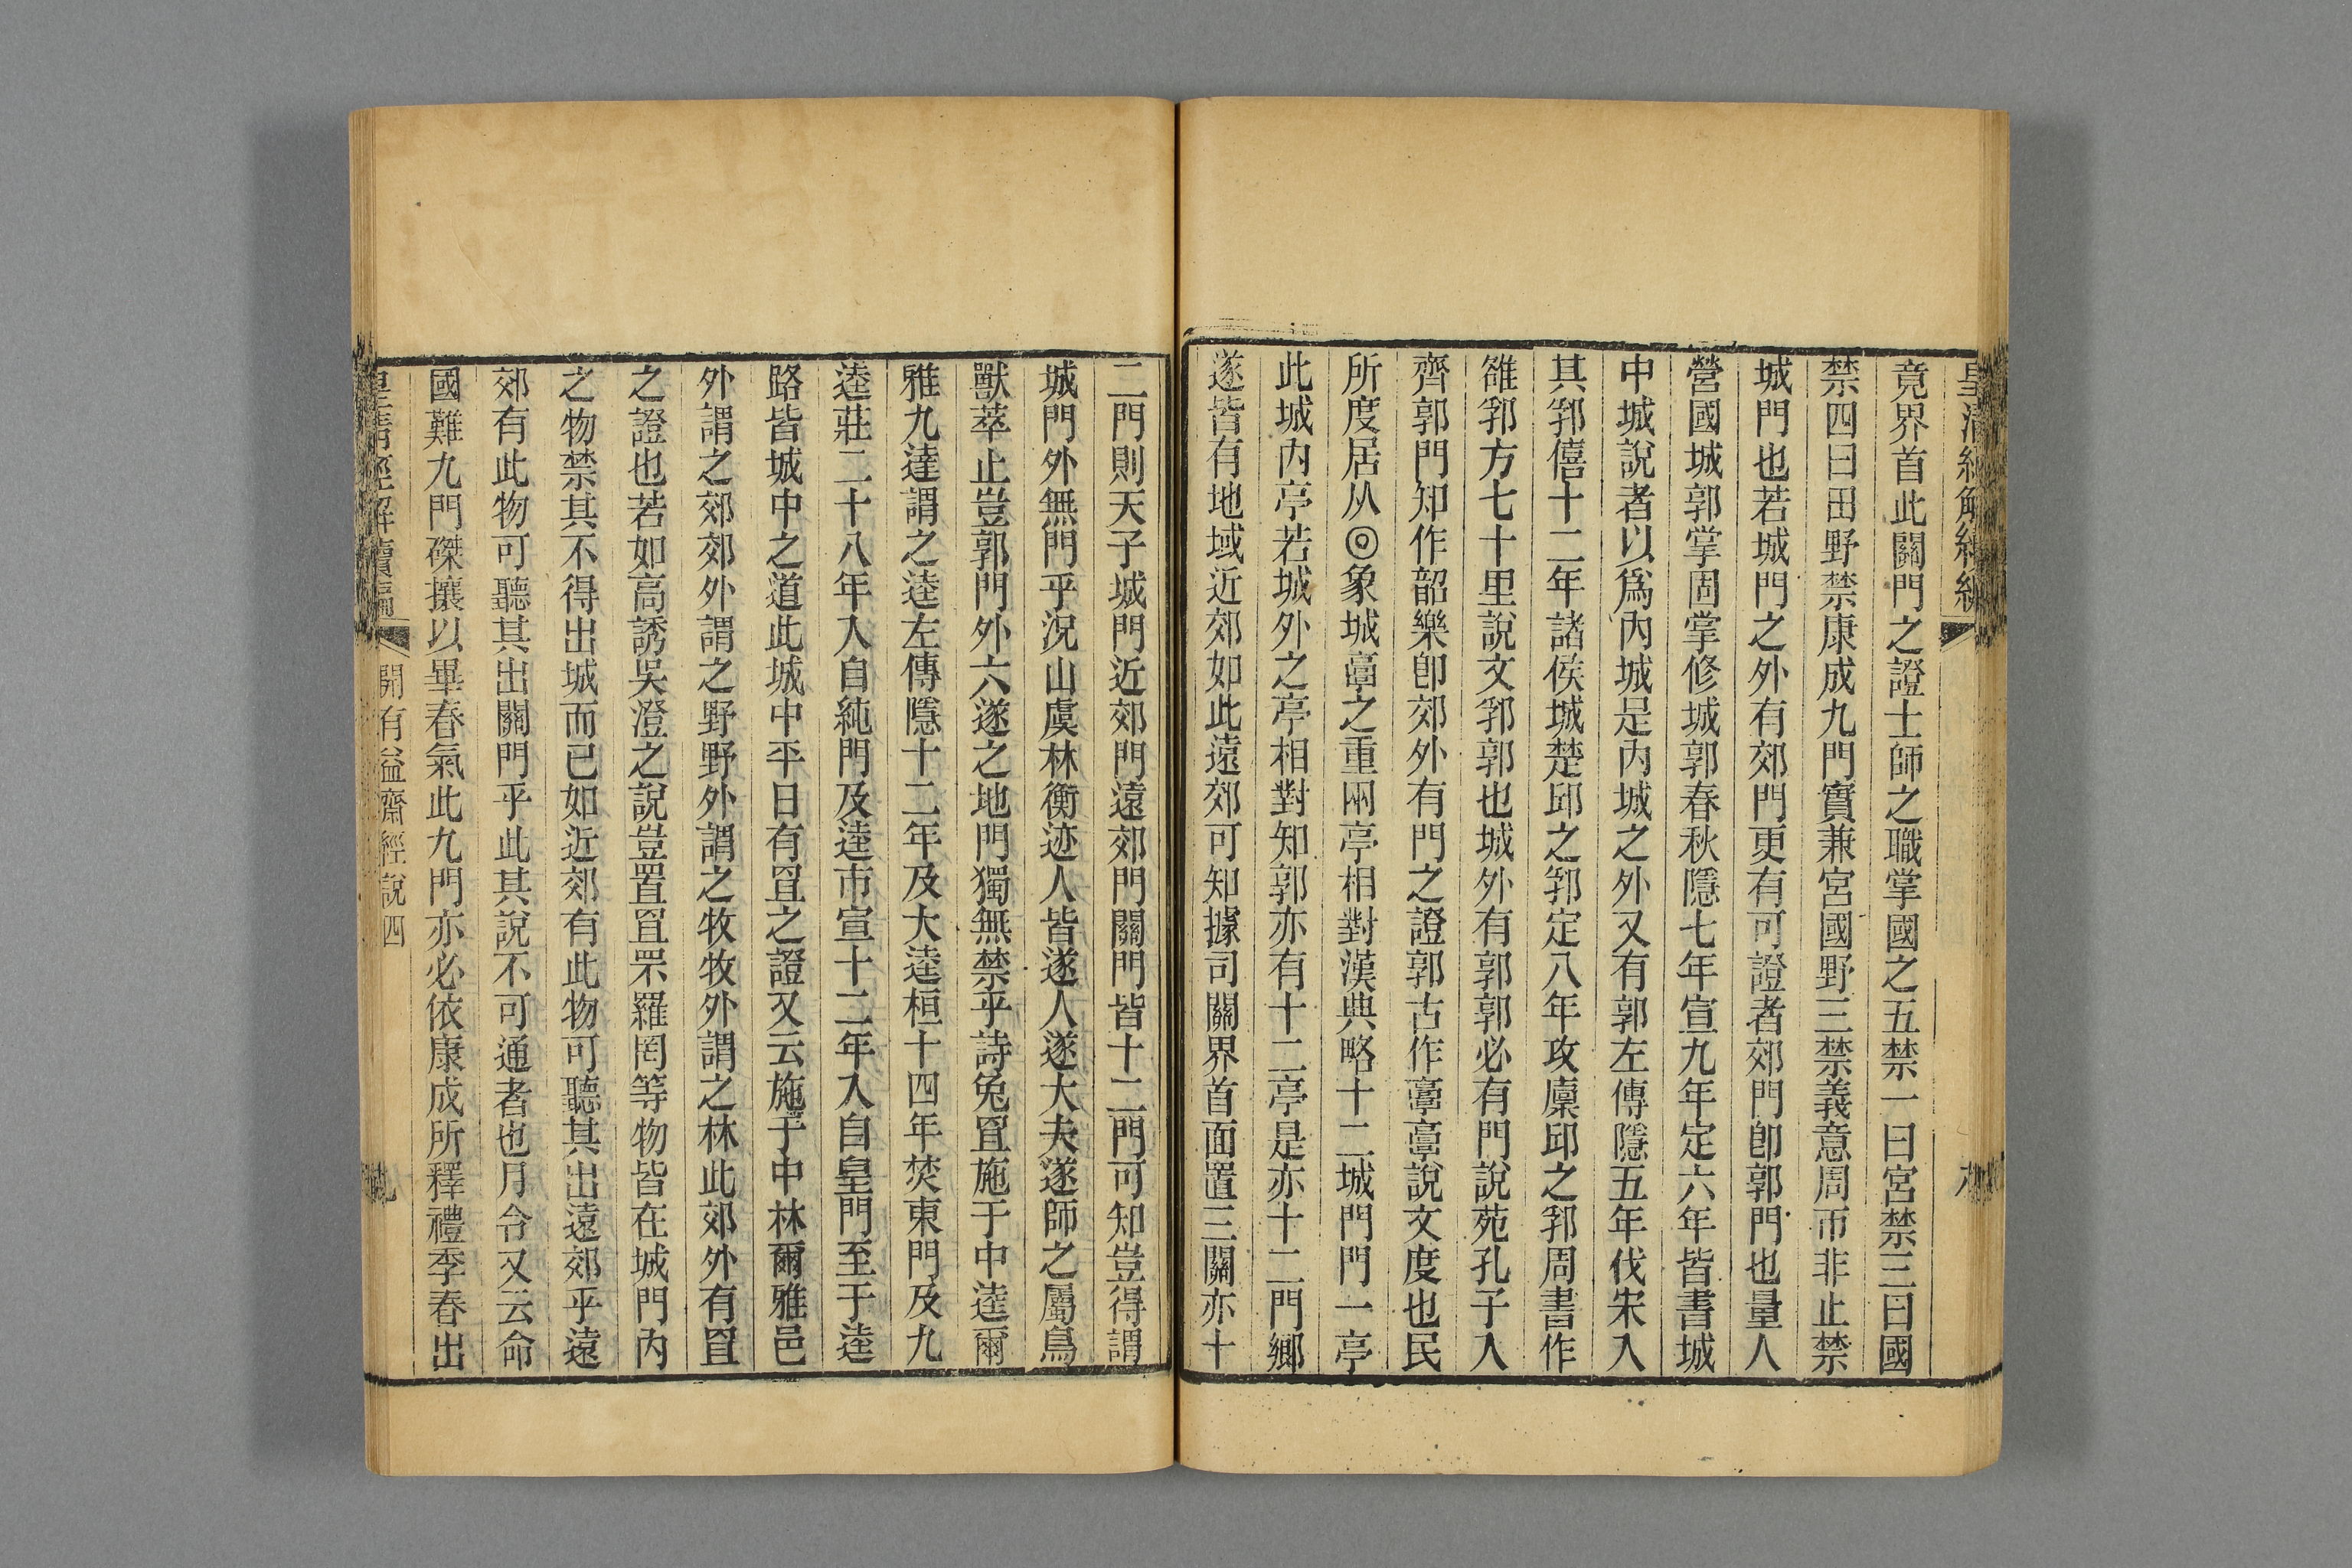 竟界首此關門之證士師之職掌國之五禁一曰宮禁三曰國
禁四曰田野禁康成九門實兼宮國野三禁義意周帀非止禁
城門也若城門之外有郊門更有可證者郊門卽郭門也量人
營國城郭掌固掌修城郭春秋隱七年宣九年定六年皆書城
中城說者以爲內城是內城之外又有郭左傳隱五年伐宋入
其郛僖十二年諸侯城楚邱之郛定八年攻廩邱之郛周書作
雒郛方七十里說文郛郭也城外有郭郭必有門說苑孔子入
齊郭門知作韶樂卽郊外有門之證郭古作𩫏𩫏說文度也民
所度居从◎象城𩫏之重兩亭相對漢典略十二城門門一亭
此城內亭若城外之亭相對知郭亦有十二亭是亦十二門鄉
遂皆有地域近郊如此遠郊可知據司關界首面置三關亦十
二門則天子城門近郊門遠郊門關門皆十二門可知豈得謂
城門外無門乎況山虞林衡迹人皆遂人遂大夫遂師之屬鳥
獸萃止豈郭門外六遂之地門獨無禁乎詩兔罝施于中逵爾
雅九達謂之逵左傳隱十二年及大逵桓十四年焚東門及九
逵莊二十八年入自純門及逵市宣十二年入自皇門至于逵
路皆城中之道此城中平日有罝之證又云施于中林爾雅邑
外謂之郊郊外謂之野野外謂之牧牧外謂之林此郊外有罝
之證也若如高誘吳澄之說豈置罝罘羅罔等物皆在城門內
之物禁其不得出城而已如近郊有此物可聽其出遠郊乎遠
郊有此物可聽其出關門乎此其說不可通者也月令又云命
國難九門磔攘以畢春氣此九門亦必依康成所釋禮季春出
皇淸經解續編
開有益齋經說四